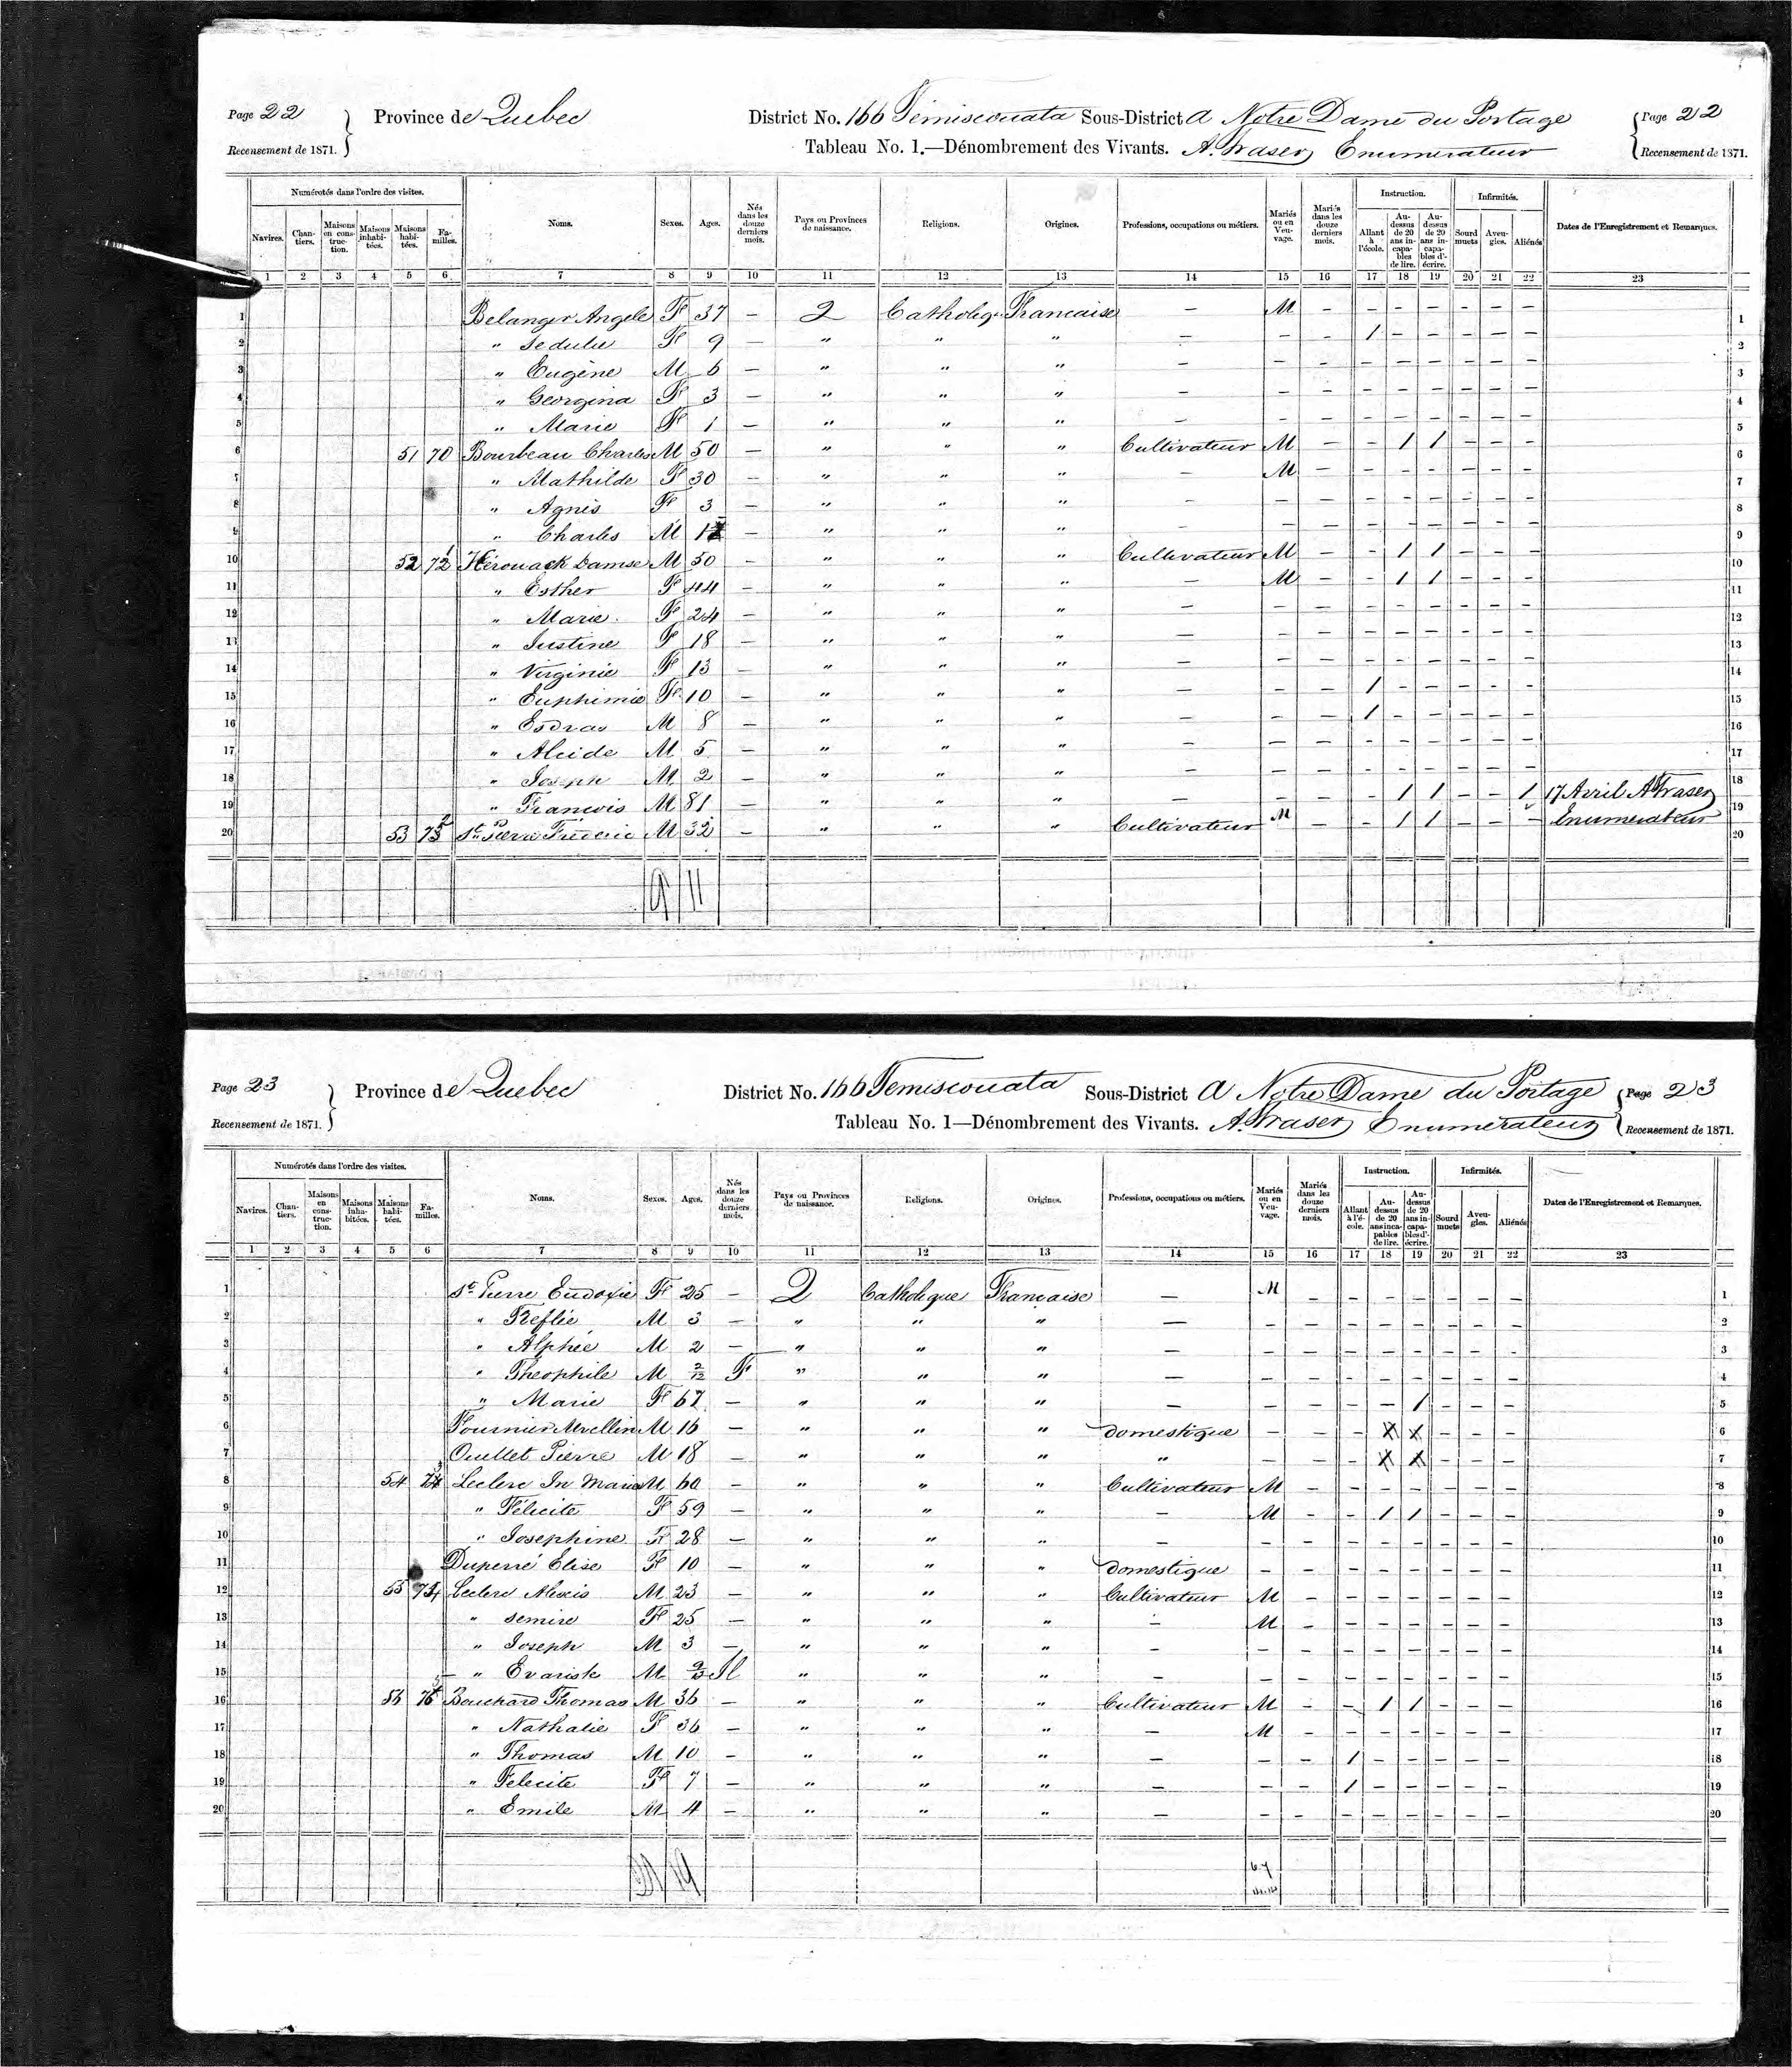 Page 22 Province de Quebec District No. 166 Témiscouata Sous-District A Notre Dame du Portage Page 22
Recensement de 1871. Tableau No. 1.—Dénombrement des Vivants. A. Fraser Enumerateur Recensement de 1871.
Numérotés dans l'ordre des visites. Instruction. Infirmités.
Navires. Chantiers. Maisons en construction. Maisons inhabitées. Maisons habitées. Familles. Noms. Sexes. Ages. Nés dans les douze derniers mois. Pays ou Provinces de naissance. Religions. Origines. Professions, occupations ou métiers. Mariés ou en Veuvage. Mariés dans les douze derniers mois. Allant à l'école. Au-dessus de 20 ans incapables de lire. Au-dessus de 20 ans incapables d'écrire. Sourd muets Aveugles. Aliénés Dates de l'Enregistrement et Remarques.
1 2 3 4 5 6 7 8 9 10 11 12 13 14 15 16 17 18 19 20 21 22 23
1 Belanger Angele F 37 — Q Catholiq. Francaise — M — — — — — — — 1
2 " Sedulie F 9 — " " " — — — 1 — — — — — 2
3 " Eugène M 6 — " " " — — — — — — — — — 3
4 " Georgina F 3 — " " " — — — — — — — — — 4
5 " Marie F 1 — " " " — — — — — — — — — 5
6 51 70 Bourbeau Charles M 50 — " " " Cultivateur M — — 1 1 — — — 6
7 " Mathilde F 30 — " " " — M — — — — — — — 7
8 " Agnès F 3 — " " " — — — — — — — — — 8
9 " Charles M 1 — " " " — — — — — — — — — 9
10 52 71 Kérouack Damse M 50 — " " " Cultivateur M — — 1 1 — — — 10
11 " Esther F 44 — " " " — M — — 1 1 — — — 11
12 " Marie F 24 — " " " — — — — — — — — — 12
13 " Justine F 18 — " " " — — — — — — — — — 13
14 " Virginie F 13 — " " " — — — — — — — — — 14
15 " Euphimie F 10 — " " " — — — 1 — — — — — 15
16 " Esdras M 8 — " " " — — — 1 — — — — — 16
17 " Alcide M 5 — " " " — — — — — — — — — 17
18 " Joseph M 2 — " " " — — — — — — — — — 18
19 " Francois M 81 — " " " — — — — 1 1 — — 1 17 Avril A Fraser 19
20 53 72 St. Pierre Fréderic M 32 — " " " Cultivateur M — — 1 1 — — — Enumerateur 20
9 11
Page 23 Province de Quebec District No. 166 Temiscouata Sous-District A Notre Dame du Portage Page 23
Recensement de 1871. Tableau No. 1—Dénombrement des Vivants. A. Fraser Enumerateur Recensement de 1871.
Numérotés dans l'ordre des visites. Instruction. Infirmités.
Navires. Chantiers. Maisons en construction. Maisons inhabitées. Maisons habitées. Familles. Noms. Sexes. Ages. Nés dans les douze derniers mois. Pays ou Provinces de naissance. Religions. Origines. Professions, occupations ou métiers. Mariés ou en Veuvage. Mariés dans les douze derniers mois. Allant à l'école. Au-dessus de 20 ans incapables de lire. Au-dessus de 20 ans incapables d'écrire. Sourd muets Aveugles. Aliénés Dates de l'Enregistrement et Remarques.
1 2 3 4 5 6 7 8 9 10 11 12 13 14 15 16 17 18 19 20 21 22 23
1 St. Pierre Eudoxie F 25 — Q Catholique Francaise — M — — — — — — — 1
2 " Trefflé M 3 — " " " — — — — — — — — — 2
3 " Alphée M 2 — " " " — — — — — — — — — 3
4 " Theophile M 2/12 F " " " — — — — — — — — — 4
5 " Marie F 67 — " " " — — — — — 1 — — — 5
6 Fournier M 16 — " " " domestique — — — X X — — — 6
7 Ouellet Pierre M 18 — " " " " — — — X X — — — 7
8 54 73 Leclerc Jn Marie M 60 — " " " Cultivateur M — — — — — — — 8
9 " Félicite F 59 — " " " — M — — 1 1 — — — 9
10 " Josephine F 28 — " " " — — — — — — — — — 10
11 Duperré Elise F 10 — " " " domestique — — — — — — — — 11
12 55 74 Leclerc Alexis M 23 — " " " Cultivateur M — — — — — — — 12
13 " Semire F 25 — " " " — M — — — — — — — 13
14 " Joseph M 3 — " " " — — — — — — — — — 14
15 " Evariste M " " " — — — — — — — — — 15
16 56 75 Bouchard Thomas M 36 — " " " Cultivateur M — — 1 1 — — — 16
17 " Nathalie F 36 — " " " — M — — — — — — — 17
18 " Thomas M 10 — " " " — — — 1 — — — — — 18
19 " Felecite F 7 — " " " — — — 1 — — — — — 19
20 " Emile M 4 — " " " — — — — — — — — — 20